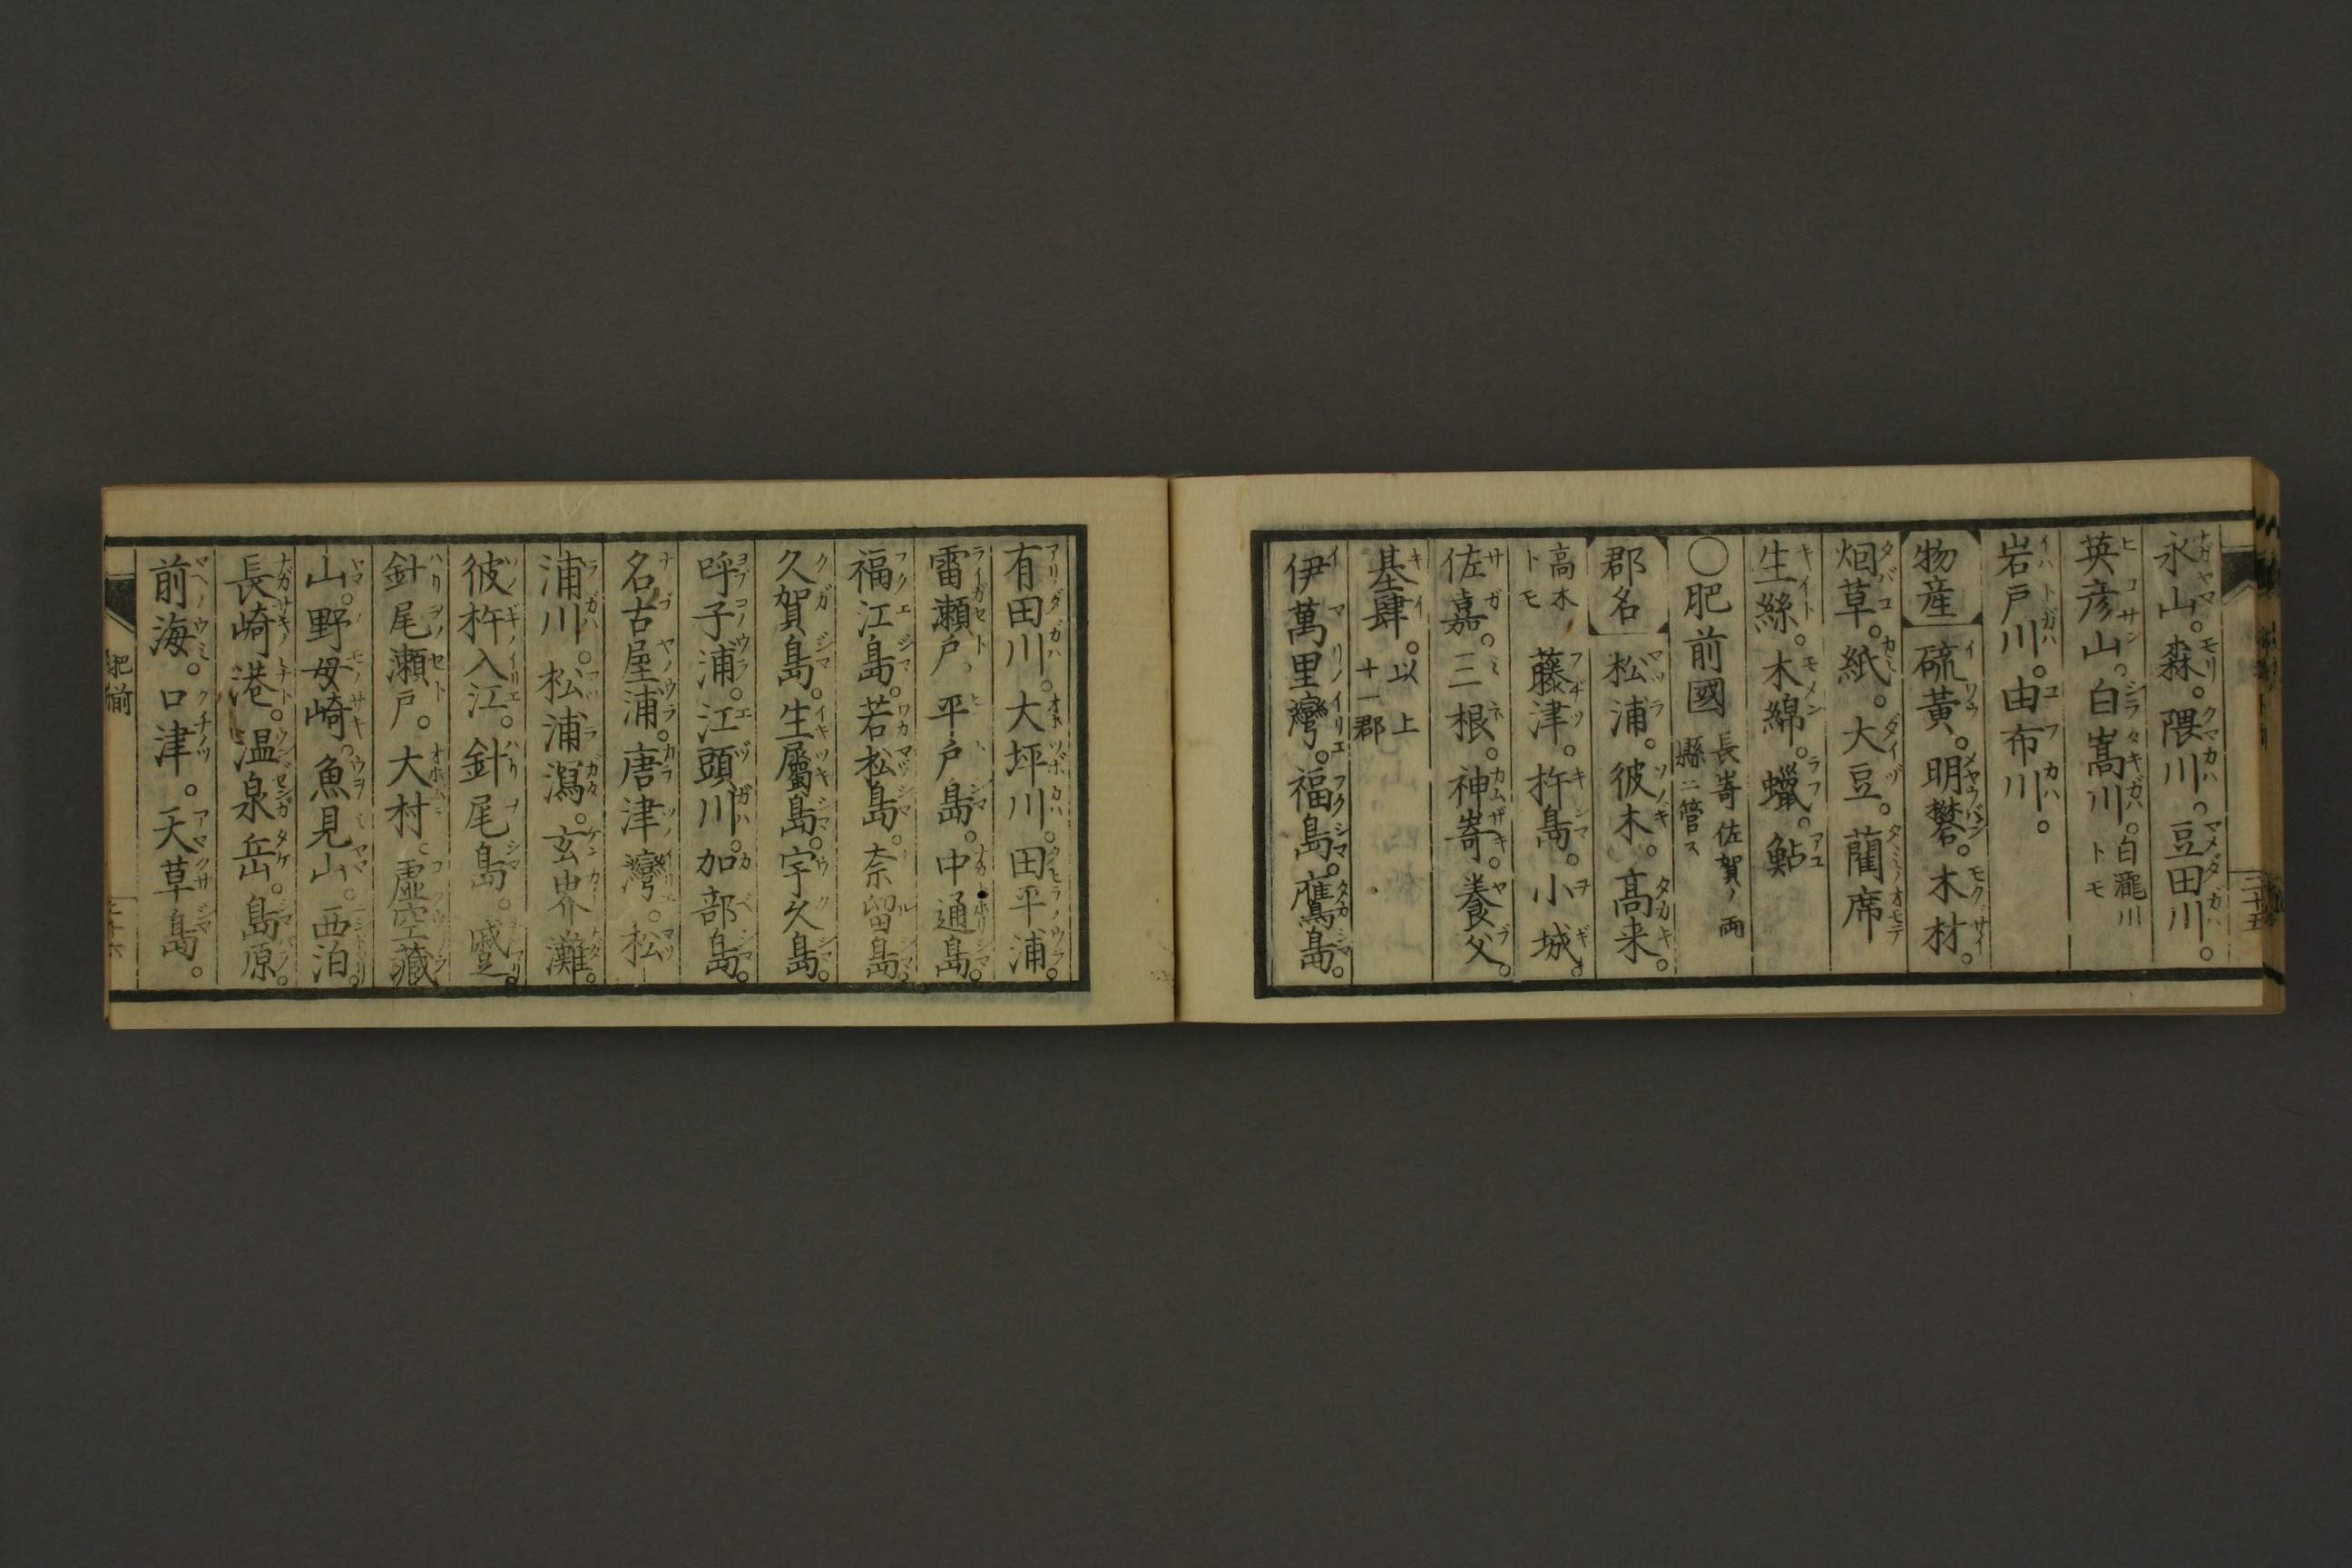 永山。森。隈川。豆田川。
英彦山。白嵩川。白瀧川トモ
岩戸川。由布川。
物産 硫黄。明礬。木材。
烟草。紙。大豆。藺席
生絲。木綿。蠟。鮎
〇肥前國 長嵜佐賀ノ両縣ニ管ス
郡名 松浦。彼木。高来。
高木トモ 藤津。杵島。小城。
佐嘉。三根。神嵜。養父。
基肆。以上十一郡
伊萬里灣。福島。鷹島。
有田川。大坪川。田平浦。
雷瀬戸 平戸島。中通島。
福江島。若松島。奈留島。
久賀島。生屬島。宇久島。
呼子浦。江頭川。加部島。
名古屋浦。唐津灣。松
浦川。松浦潟。玄界灘。
彼杵入江。針尾島。
針尾瀬戸。大村。虚空藏
山。野母崎。魚見山。西泊。
長崎港。温泉岳。島原。
前海。口津。天草島。
肥前